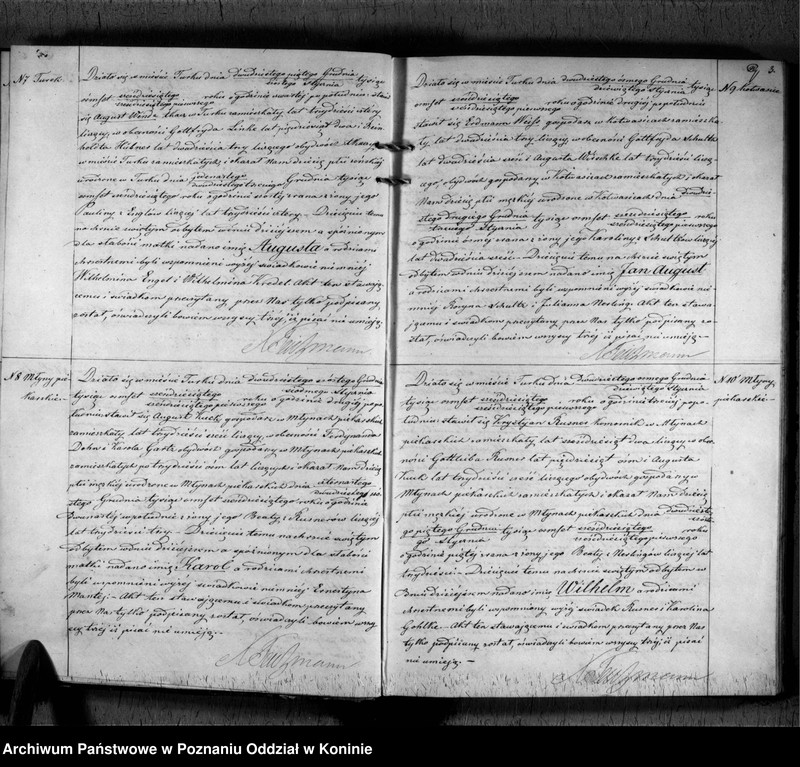 N 7 Turek.
Działo się w mieście Turku dnia dwudziestego piątego Grudnia / szóstego Stycznia tysiąc
ośmset sześćdziesiątego / sześćdziesiątego pierwszego roku o godzinie czwartej popołudniu; stawił
się August Wenda tkacz w Turku zamieszkały lat trzydzieści cztery
liczący, w obecności Gottfryda Linke lat pięćdziesiąt dwa i
Hübner lat dwadzieścia trzy liczącego obydwóch
w mieście Turku zamieszkałych; i okazał Nam dziecię płci żeńskiej
urodzone w Turku dnia Grudnia tysiąc
ośmset sześćdziesiątego roku o godzinie szóstej z rana z żony jego
Pauliny z Englów liczącej lat trzydzieści cztery. Dziecięciu temu
na chrzcie świętym odbytem w dniu dzisiejszem a spóźnionym
dla słabości matki nadano imię Augusta a rodzicami
chrzestnemi byli wspomnieni wyżej świadkowie niemniej
Wilhelmina Engel i Wilhelmina Akt ten stawają-
cemu i świadkom przeczytany przez Nas tylko podpisany
został, oświadczyli bowiem wszyscy trzej, iż pisać nie umieją.
N 8 Młyny pie-
kaskie.
Działo się w mieście Turku dnia dwudziestego szóstego Grudnia / siódmego Stycznia
tysiąc ośmset sześćdziesiątego / sześćdziesiątego pierwszego roku o godzinie drugiej popo-
łudniu stawił się August Kuck gospodarz w Młynach piekaskich
zamieszkały lat trzydzieści sześć liczący, w obecności Ferdynanda
Dahn i Karola Gartz obydwóch gospodarzy w Młynach piekaskich
zamieszkałych po trzydzieści ośm lat liczących; i okazał Nam dziecię
płci męzkiej urodzone w Młynach piekaskich dnia
Grudnia tysiąc ośmset sześćdziesiątego roku o godzinie
dwunastej w południe z żony jego Beaty z Rusnerów liczącej
lat trzydzieści trzy. Dziecięciu temu na chrzcie świętym
odbytem w dniu dzisiejszem a spóźnionym dla słabości
matki nadano imię Karol a rodzicami chrzestnemi
byli wspomnieni wyżej świadkowie niemniej Ernestyna
Akt ten stawającemu i świadkom przeczytany
przez Nas tylko podpisany został, oświadczyli bowiem wszy-
scy trzej iż pisać nie umieją.
3.
N 9 Kotwasice
Działo się w mieście Turku dnia dwudziestego ósmego Grudnia / dziewiątego Stycznia tysiąc
ośmset sześćdziesiątego / sześćdziesiątego pierwszego roku o godzinie drugiej popołudniu
stawił się Erdmann Weiss gospodarz w Kotwasicach zamieszka-
ły, lat dwadzieścia trzy liczący, w obecności Gottfryda Schultz
lat dwadzieścia sześć i Augusta lat trzydzieści liczą-
cego, obydwóch gospodarzy w Kotwasicach zamieszkałych; i okazał
Nam dziecię płci męzkiej urodzone w Kotwasicach dnia dwudzie-
stego drugiego Grudnia / trzeciego Stycznia tysiąc ośmset sześćdziesiątego / sześćdziesiątego pierwszego roku
o godzinie ósmej z rana z żony jego Karoliny z Schultzów liczącej
lat dwadzieścia sześć. Dziecięciu temu na chrzcie świętym
odbytem w dniu dzisiejszem nadano imię Jan August
a rodzicami chrzestnemi byli wspomnieni wyżej świadkowie nie-
mniej Rozyna Schultz i Julianna Akt ten stawa-
jącemu i świadkom przeczytany przez Nas tylko podpisany zo-
stał, oświadczyli bowiem wszyscy trzej iż pisać nie umieją.
N 10 Młyny
piekaskie.
Działo się w mieście Turku dnia dwudziestego ósmego Grudnia / dziewiątego Stycznia
tysiąc ośmset sześćdziesiątego / sześćdziesiątego pierwszego roku o godzinie trzeciej popo-
łudniu stawił się Krystyan Rusner komornik w Młynach
piekaskich zamieszkały lat sześćdziesiąt dwa liczący w obe-
cności Gottlieba Rusner lat pięćdziesiąt ośm i Augusta
Kuck lat trzydzieści sześć liczącego obydwóch gospodarzy w
Młynach piekaskich zamieszkałych; i okazał Nam dziecię
płci męzkiej urodzone w Młynach piekaskich dnia dwudzieste-
go piątego Grudnia / szóstego Stycznia tysiąc ośmset sześćdziesiątego / sześćdziesiątego pierwszego roku
o godzinie piątej z rana z żony jego Beaty z liczącej lat
trzydzieści. Dziecięciu temu na chrzcie świętym odbytem w
dniu dzisiejszem nadano imię Wilhelm a rodzicami
chrzestnemi byli wspomniany wyżej świadek Rusner i Karolina
Gohlke. Akt ten stawającemu i świadkom przeczytany przez Nas
tylko podpisany został, oświadczyli bowiem wszyscy trzej, iż pisać
nie umieją.
Archiwum Państwowe w Poznaniu Oddział w Koninie